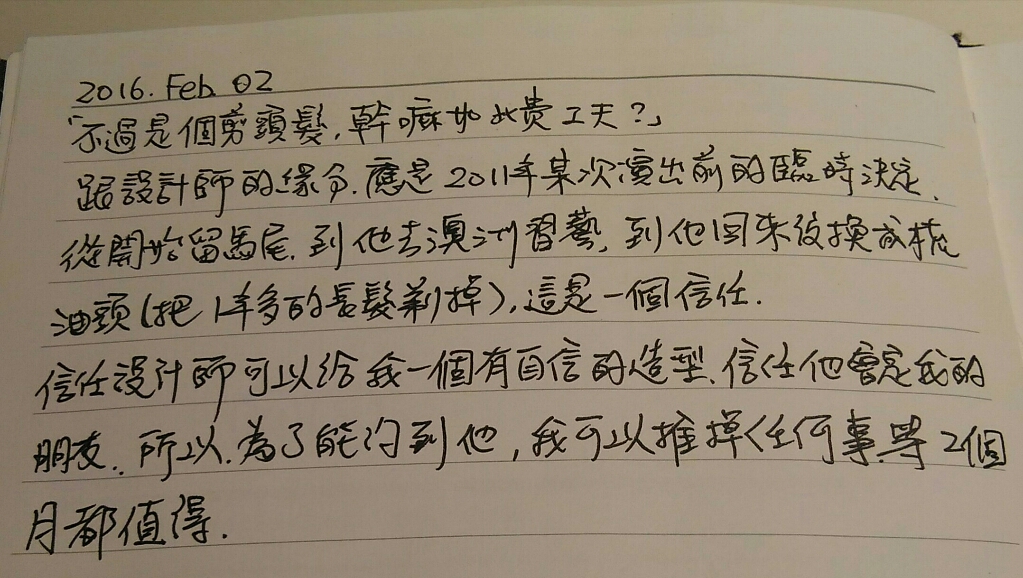 2016. Feb. 02
「不過是個剪頭髮，幹嘛如此費工夫？」
跟設計師的緣分，應是2011年某次演出前的臨時決定、
從開始留馬尾，到他去澳洲習藝，到他回來後換成梳
油頭（把1年多的長髮剃掉），這是一個信任.
信任設計師可以給我一個有自信的造型、信任他會是我的
朋友. 所以，為了能約到他，我可以推掉任何事、等2個
月都值得.